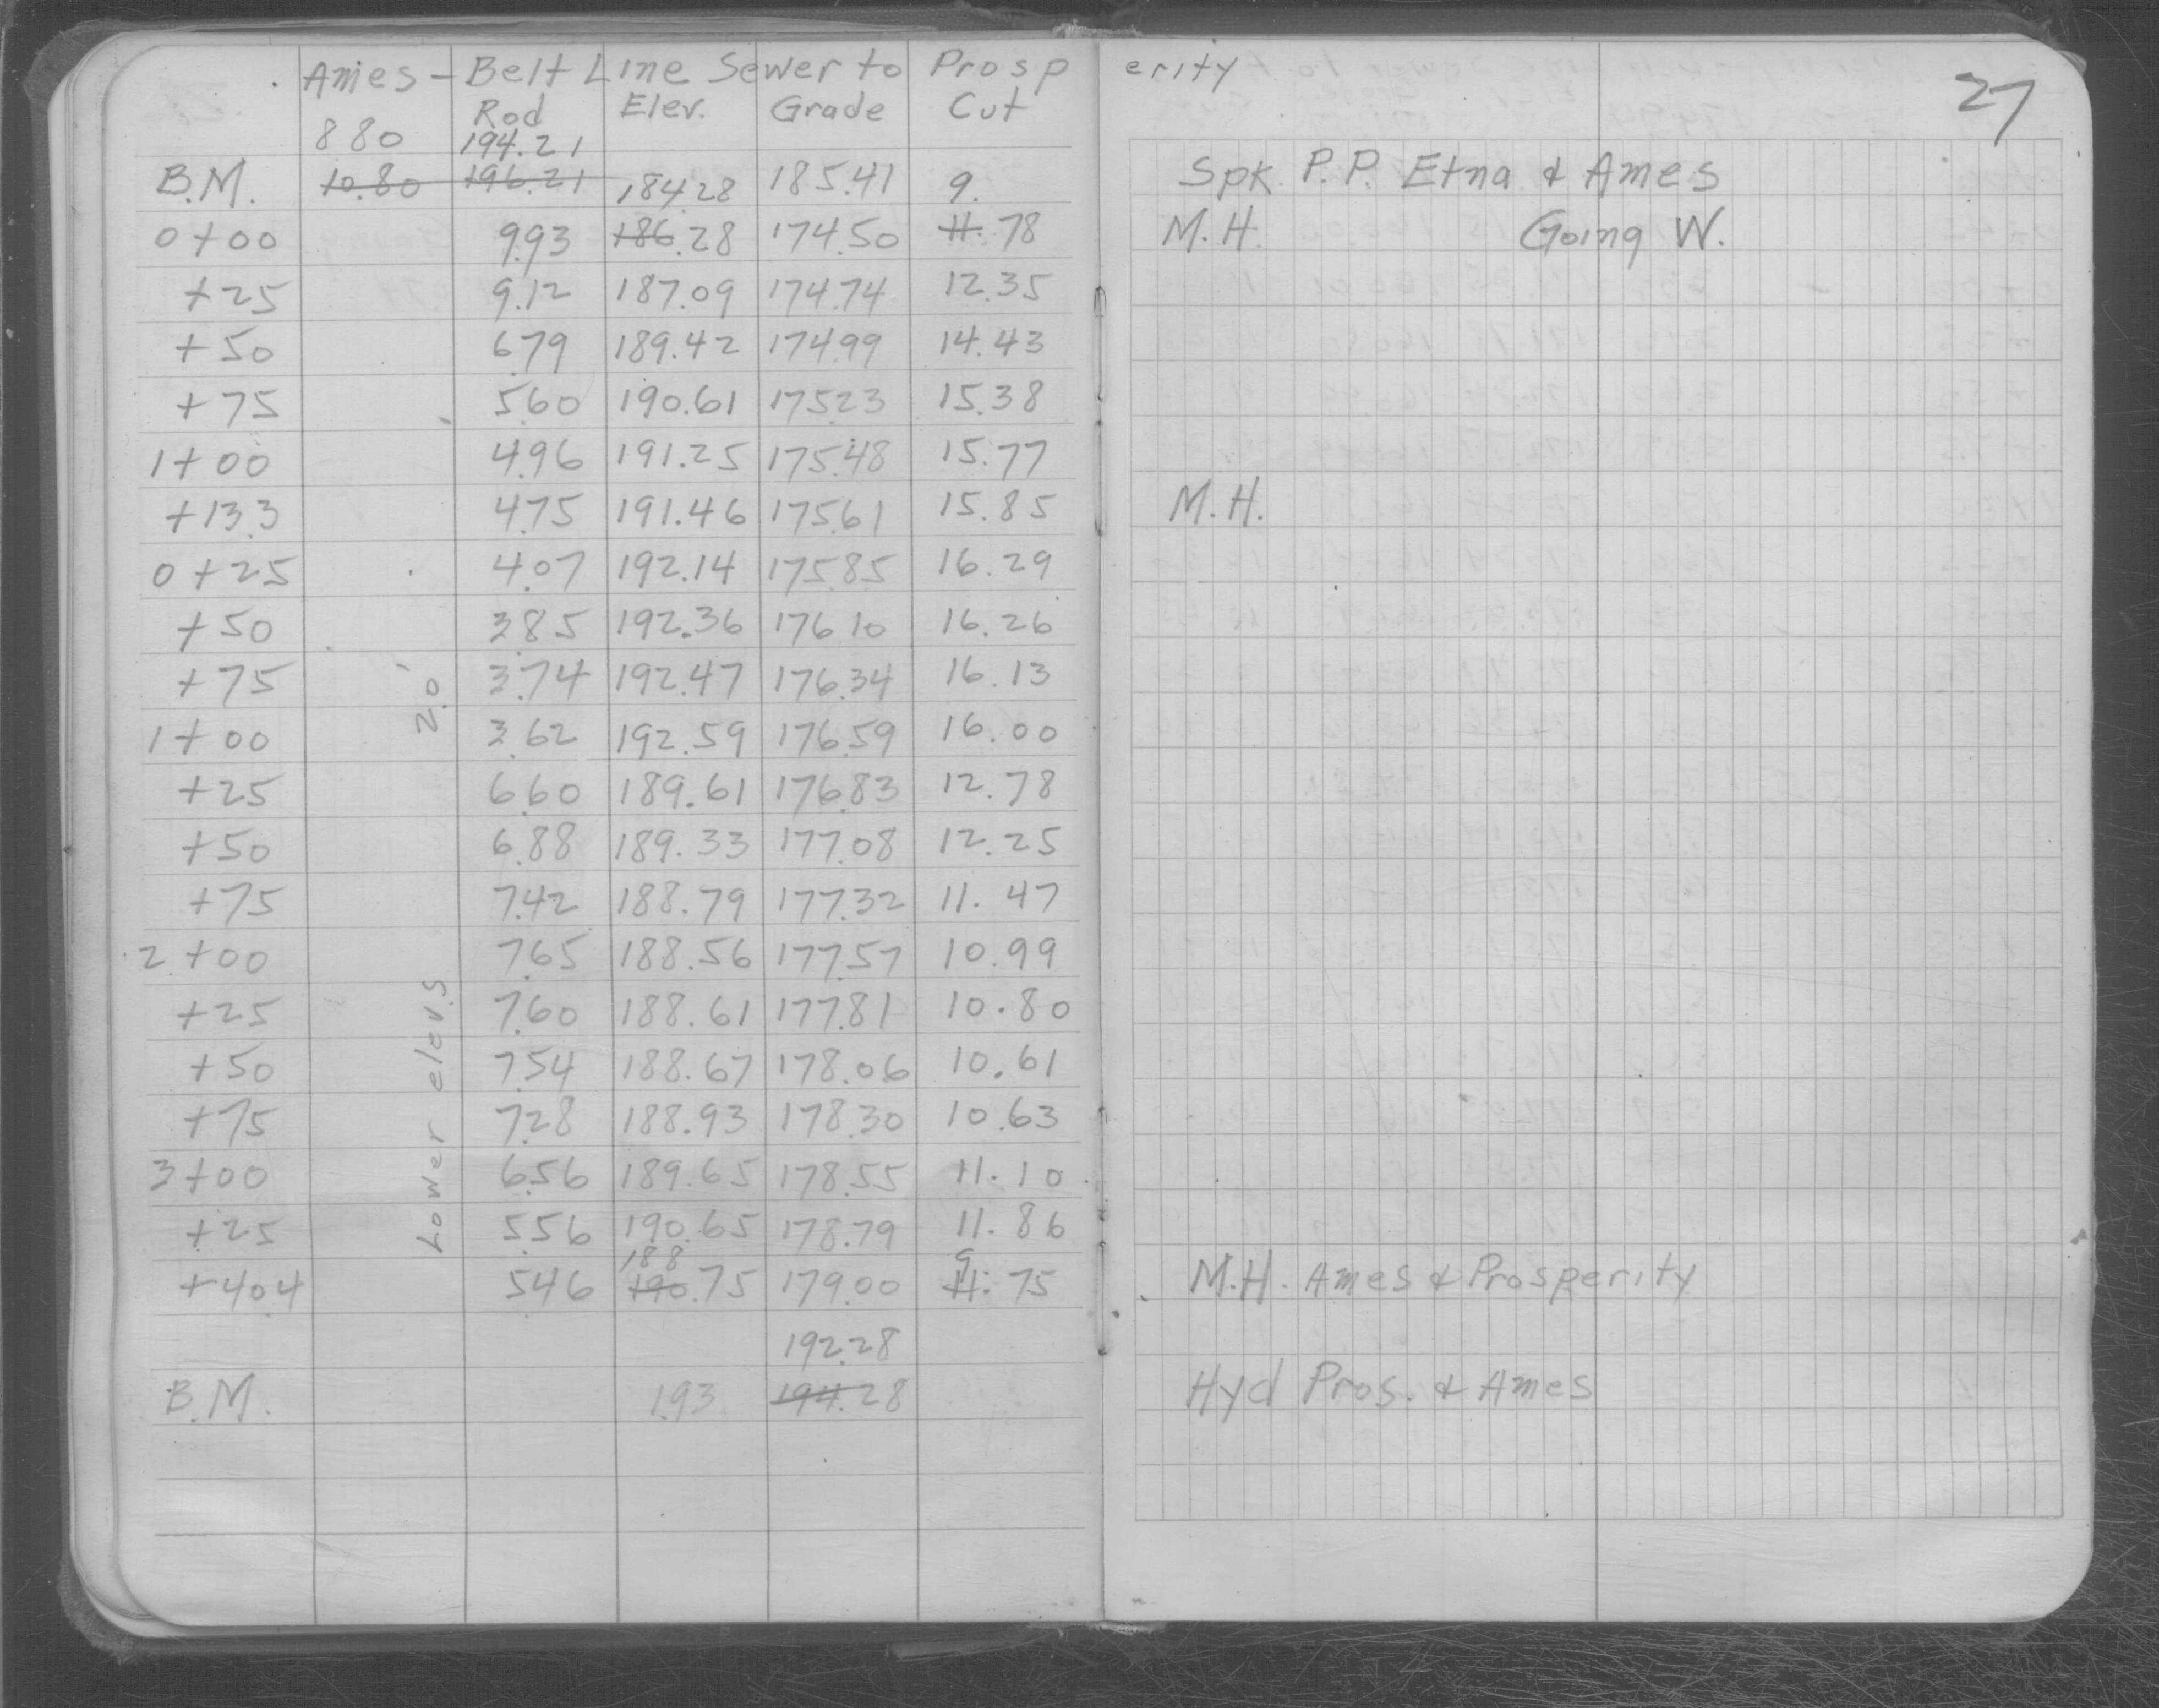 Ames - Belt Line Sewer to Prosperity
27
Rod Elev. Grade Cut
8 80 194.21
B.M. 10.80 196.21 184 28 185.41 9. Spk. P.P. Etna & Ames
0+00 9.93 186.28 174.50 11.78 M.H. Going W.
+25 9.12 187.09 174.74 12.35
+50 6.79 189.42 174.99 14.43
+75 5.60 190.61 175.23 15.38
1+00 4.96 191.25 175.48 15.77
+13.3 4.75 191.46 175.61 15.85 M.H.
0+25 4.07 192.14 175.85 16.29
+50 3.85 192.36 176.10 16.26
+75 3.74 192.47 176.34 16.13
1+00 3.62 192.59 176.59 16.00
+25 6.60 189.61 176.83 12.78
+50 6.88 189.33 177.08 12.25
+75 7.42 188.79 177.32 11.47
2+00 7.65 188.56 177.57 10.99
+25 7.60 188.61 177.81 10.80
+50 7.54 188.67 178.06 10.61
+75 7.28 188.93 178.30 10.63
3+00 6.56 189.65 178.55 11.10
+25 5.56 190.65 178.79 11.86
188 9
+40.4 5.46 190.75 179.00 11.75 M.H. Ames & Prosperity
192.28
B.M. 1.93 194.28 Hyd Pros. & Ames
Lower elev.s 2.0'